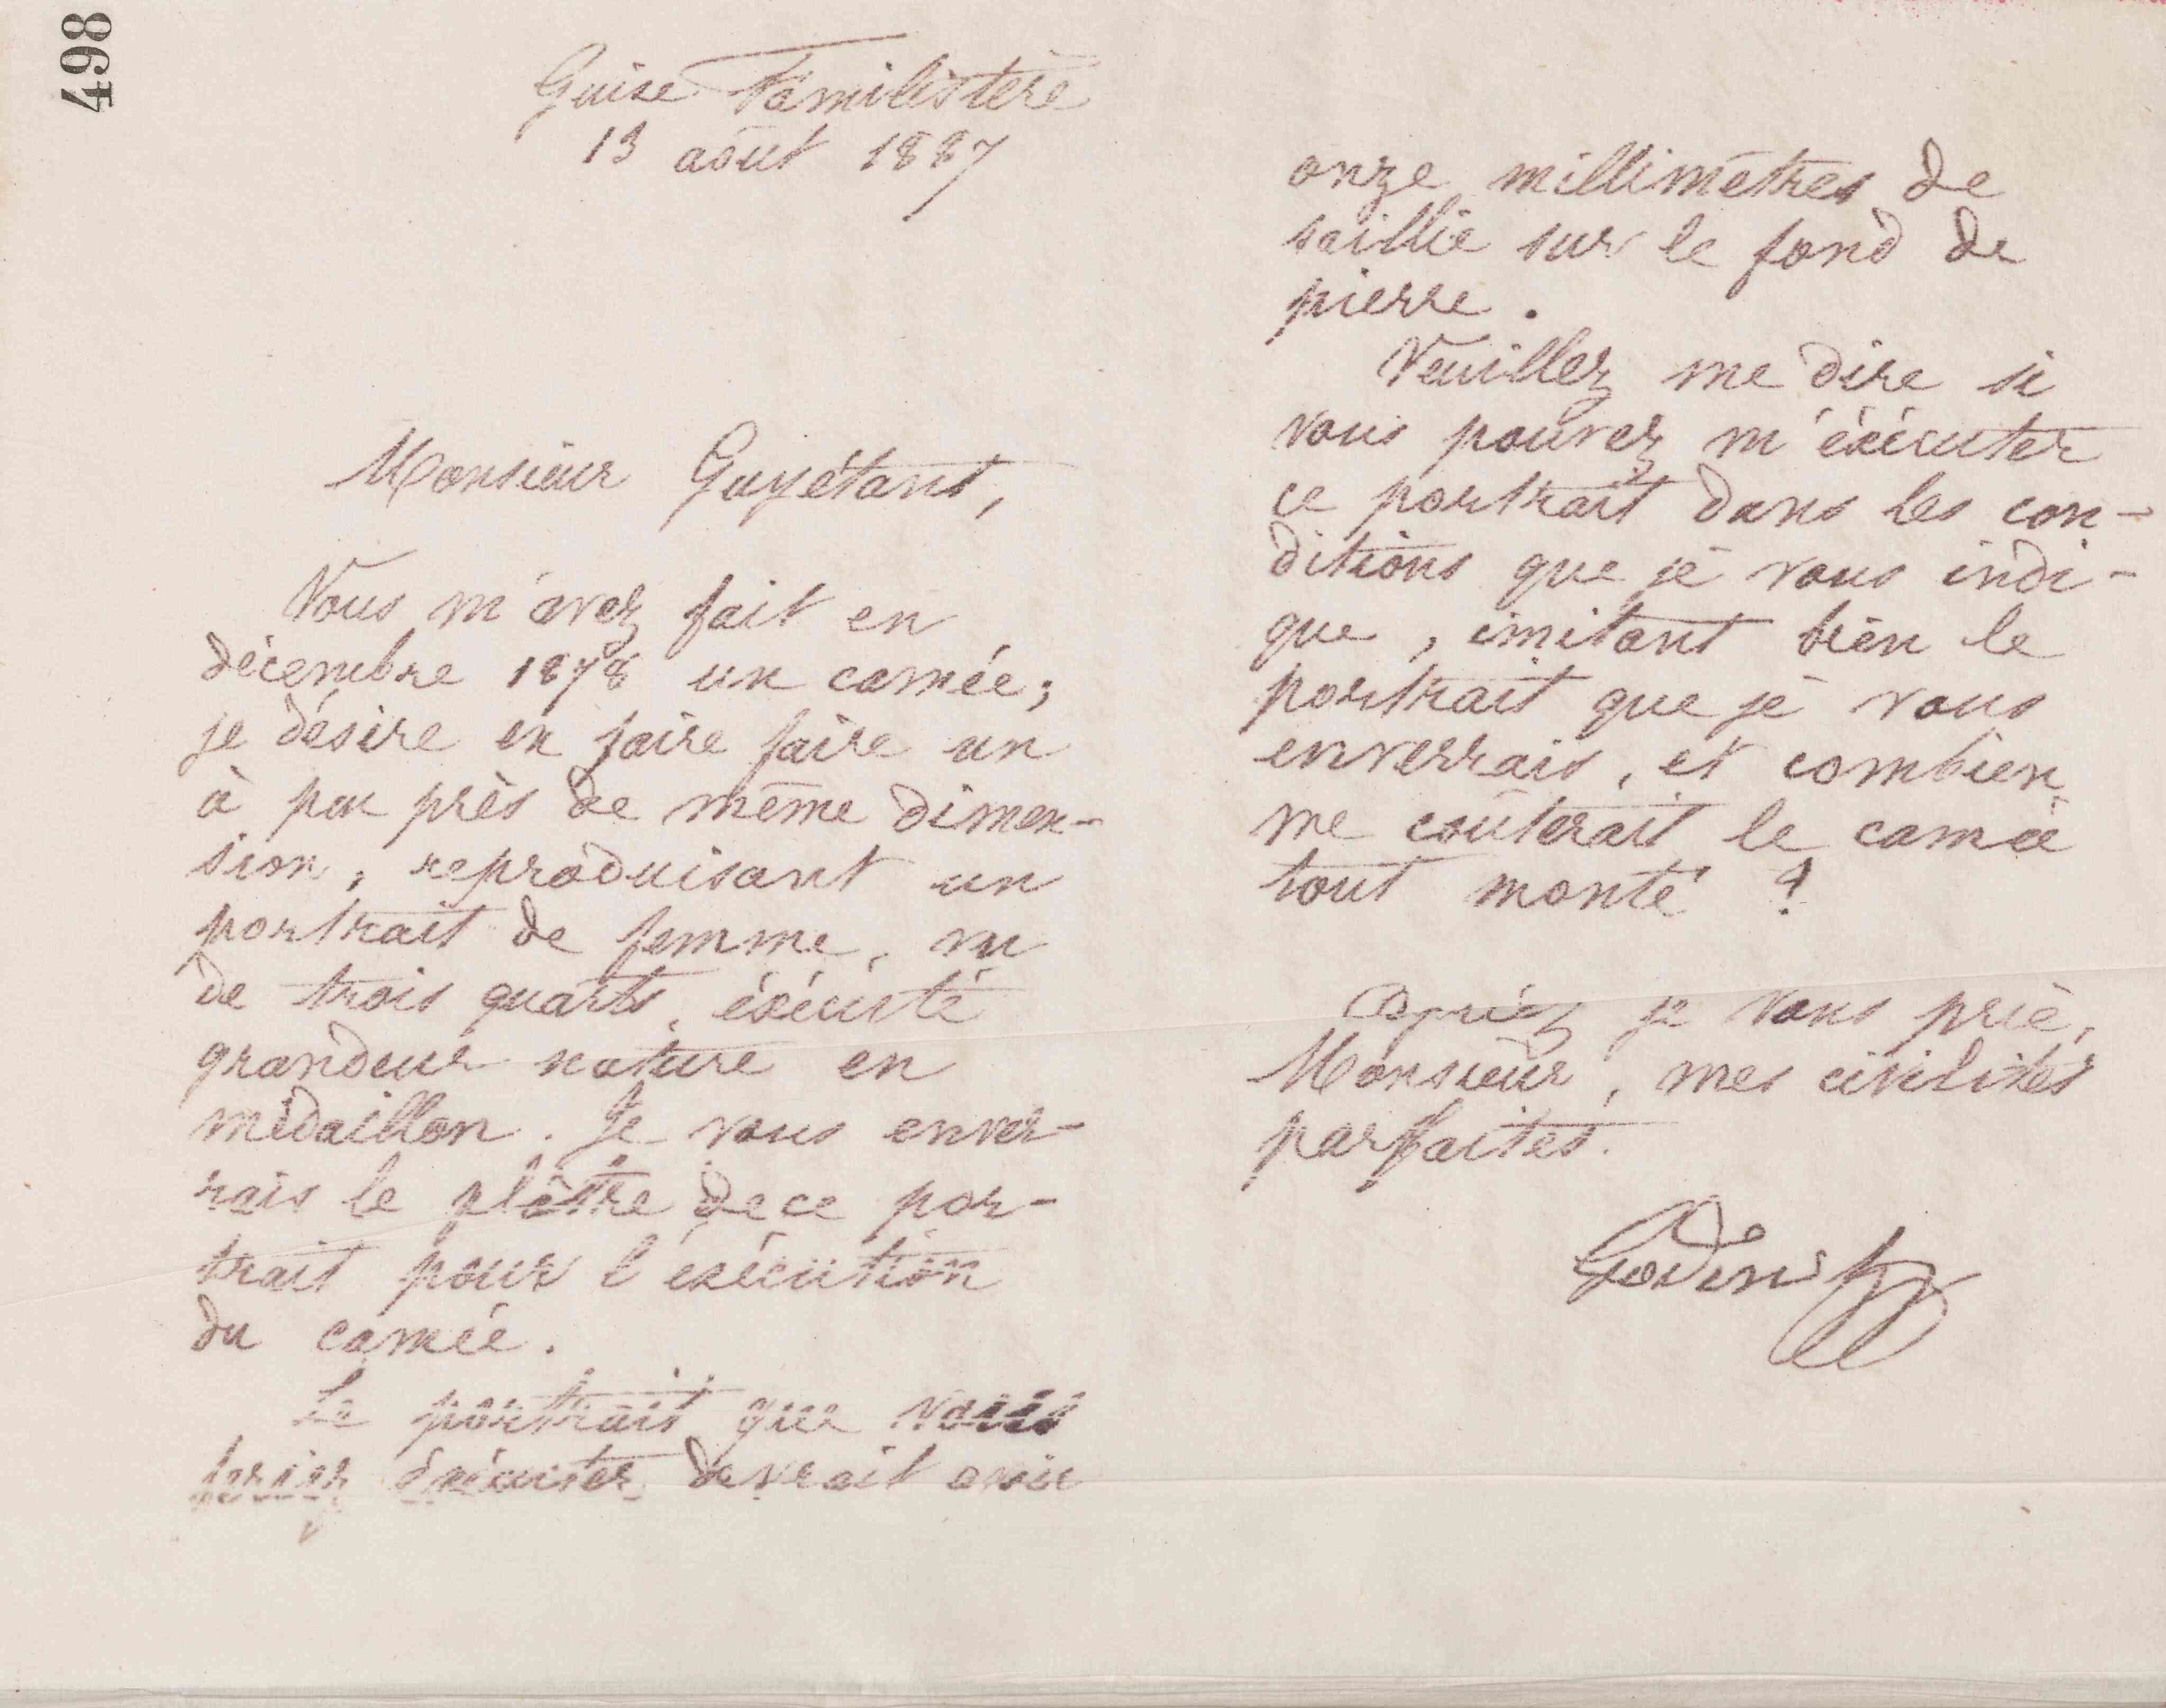 498
Guise Familistère
13 août 1887
Monsieur Guyétant,
Vous m'avez fait en
décembre 1878 un camée;
je désire en faire faire un
à peu près de même dimen-
sion, reproduisant un
portrait de femme, vu
de trois quarts, éxécuté
grandeur nature en
médaillon. Je vous enver-
rais le plâtre de ce por-
trait pour l'exécution
du camée.
Le portrait que vous
feriez exécuter devrait avoir
onze millimètres de
saillie sur le fond de
pierre.
Veuillez me dire si
vous pouvez m'éxécuter
ce portrait dans les con-
ditions que je vous indi-
que, imitant bien le
portrait que je vous
enverrais, et combien
me coûterait le camée
tout monté ?
Agréez je vous prie,
Monsieur, mes civilités
parfaites.
Godin